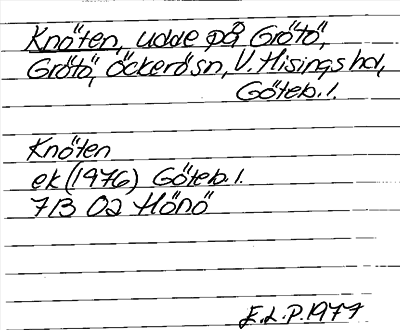 Knöten, udde på Grötö,
Grötö, Öckerö sn, V. Hisings hd,
Göteb. l.
Knöten
ek (1976) Göteb. l.
713 Oa Hönö
E.L.P. 1977